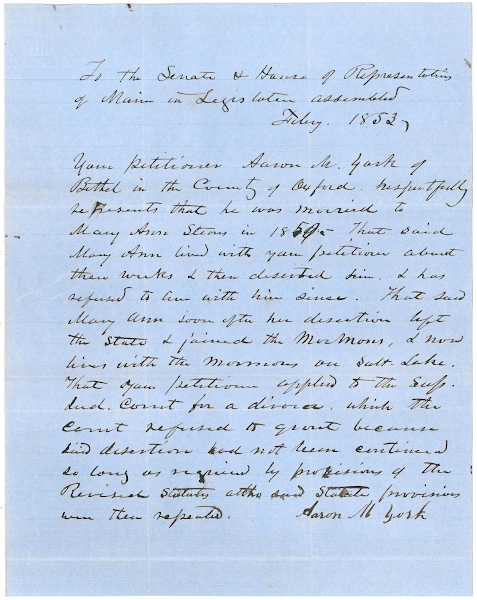 To the Senate & House of Representatives
of Maine in Legislature assembled
Feby. 1853,
Your petitioner Aaron M. York of
Bethel in the County of Oxford respectfully
represents that he was married to
Mary Ann Stoons in 1850. That said
Mary Ann lived with your petitioner about
three weeks & then deserted him. & has
refused to live with him sinse. That said
Mary Ann soon after her desertion left
the State & joined the Mormons, & now
lives with the Mormons on Salt Lake.
That your petitioner applied to the Sup.
Jud. Court for a divorce, which the
court refused to grant because
said desertion had not been continued
so long as required by provisions of the
Revised Statutes altho said Statute provisions
were then repealed. Aaron M York